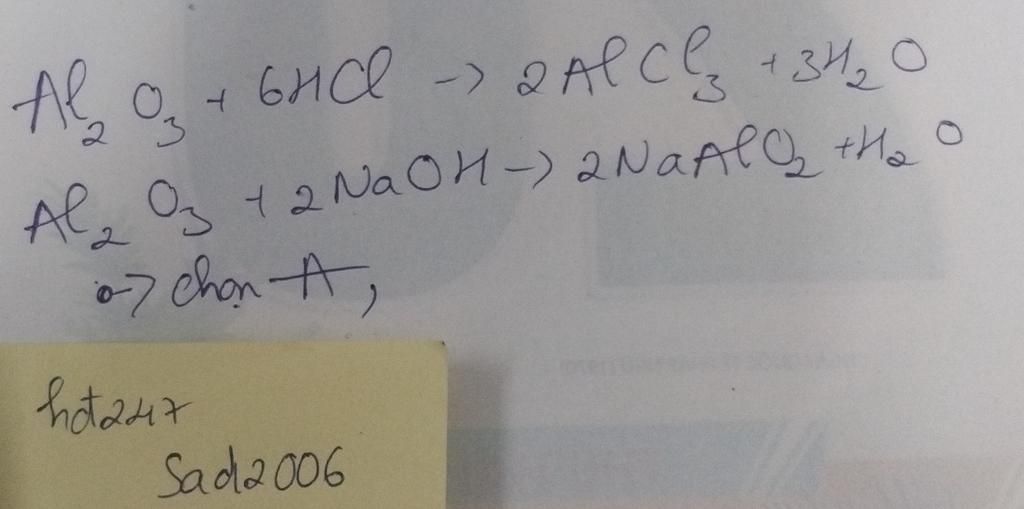 Al₂O₃ + 6HCl -> 2AlCl₃ + 3H₂O
Al₂O₃ + 2NaOH -> 2NaAlO₂ + H₂O
=> chọn A,
hdt247
Sad2006